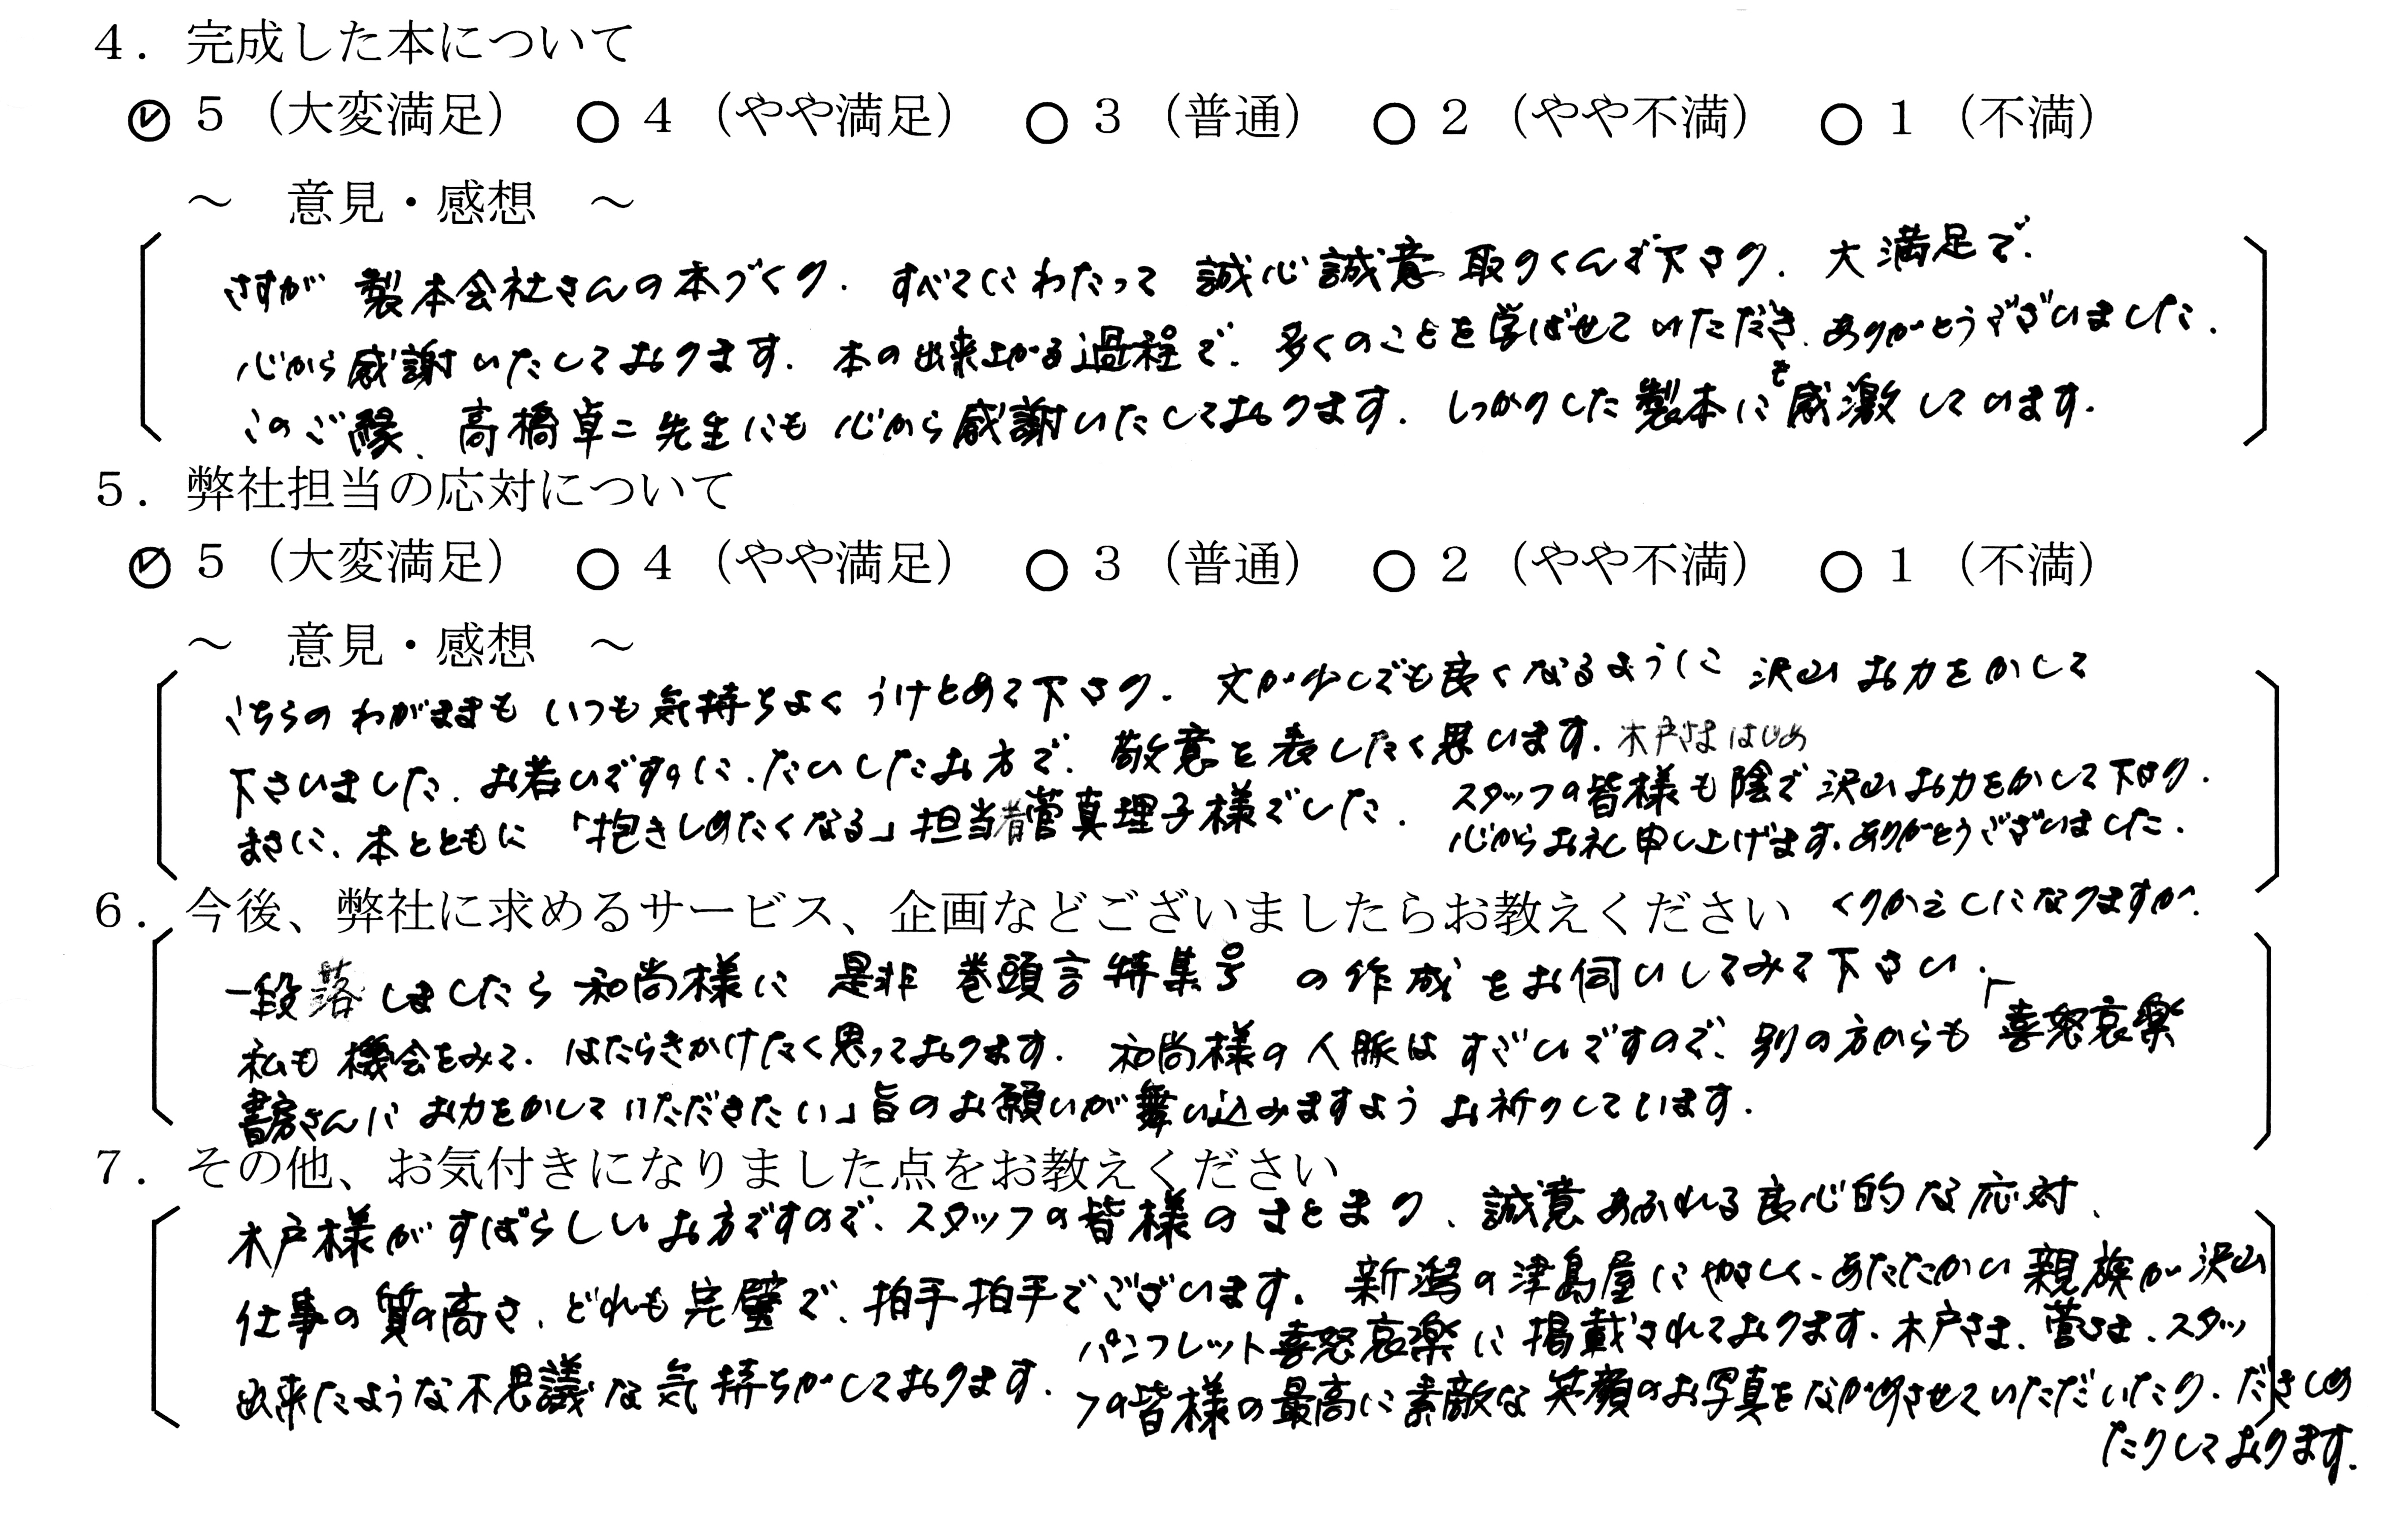 ４．完成した本について
５（大変満足） ○４（やや満足） ○３（普通） ○２（やや不満） ○１（不満）
～ 意見・感想 ～
さすが 製本会社さんの本づくり、すべてにわたって 誠心誠意 取りくんで下さり、大満足で、
心から感謝いたしております。本の出来上がる過程で、多くのことを学ばせていただき、ありがとうございました。
このご縁、高橋卓二先生にも心から感謝いたしております。しっかりした製本にも感激しています。
５．弊社担当の応対について
５（大変満足） ○４（やや満足） ○３（普通） ○２（やや不満） ○１（不満）
～ 意見・感想 ～
こちらのわがままも いつも気持ちよく うけとめて下さり、文が少しでも良くなるように 沢山 お力をかして
下さいました。お若いですのに、たいしたお方で、敬意を表したく思います。木戸さまはじめ
まさに、本とともに「抱きしめたくなる」担当者菅真理子様でした。スタッフの皆様も陰で沢山お力をかして下さり、
心からお礼申し上げます。ありがとうございました。
６．今後、弊社に求めるサービス、企画などございましたらお教えください くりかえしになりますが、
一段落しましたら 和尚様に 是非 巻頭言特集号 の作成をお伺いしてみて下さい。
私も 機会をみて、はたらきかけたく思っております。和尚様の人脈はすごいですので、別の方からも「喜怒哀楽
書房さんに お力をかしていただきたい」旨のお願いが舞い込みますよう お祈りしています。
７．その他、お気付きになりました点をお教えください
木戸様がすばらしいお方ですので、スタッフの皆様のまとまり、誠意あふれる良心的な応対、
仕事の質の高さ、どれも完璧で、拍手拍手でございます。新潟の津島屋にやさしく、あたたかい親族が沢山
出来たような不思議な気持ちがしております。パンフレット喜怒哀楽に掲載されております。木戸さま、菅さま、スタッ
フの皆様の最高に素敵な笑顔のお写真をながめさせていただいたり、だきしめ
たりしております。